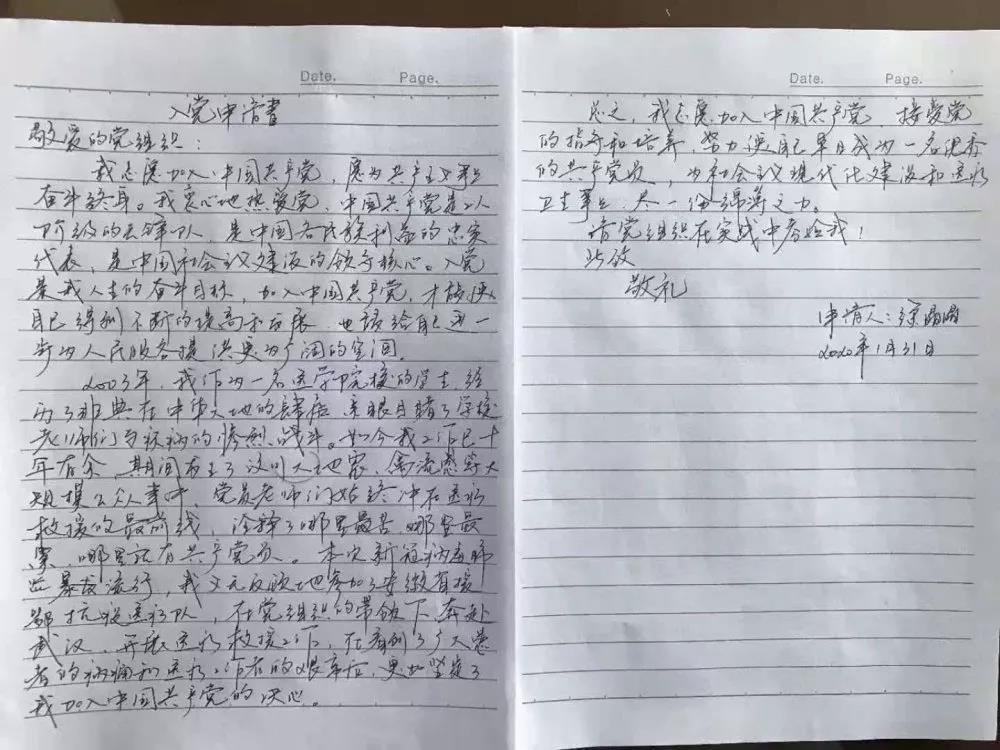 Date. Page.
入党申请書
敬爱的党组织：
我志愿加入中国共产党，愿为共产主义事业
奋斗终身。我衷心地热爱党，中国共产党是工人
阶级的先锋队，是中国各民族利益的忠实
代表，是中国社会主义建设的领导核心。入党
是我人生的奋斗目标，加入中国共产党，才能使
自己得到不断的提高和发展，也该给自己进一
步为人民服务提供更为广阔的空间。
2003年，我作为一名医学院校的学生，经
历了非典在中华大地的肆虐，亲眼目睹了学校
老师们与疾病的惨烈战斗。如今我工作已十
年有余，期间发生了汶川大地震、禽流感等大
规模公众事件，党员老师们始终冲在医疗
救援的最前线，诠释了哪里最苦、哪里最
累，哪里就有共产党员。本次新冠病毒肺
炎暴发流行，我义无反顾地参加了安徽省援
鄂抗疫医疗队，在党组织的带领下奔赴
武汉，开展医疗救援工作，在看到了广大患
者的病痛和医疗工作者的艰辛后，更加坚定了
我加入中国共产党的决心。
Date. Page.
总之，我志愿加入中国共产党，接受党
的指导和培养，努力使自己早日成为一名优秀
的共产党员，为社会主义现代化建设和医疗
卫生事业，尽一份绵薄之力。
请党组织在实战中考验我！
此致
敬礼
申请人：
2020年1月31日